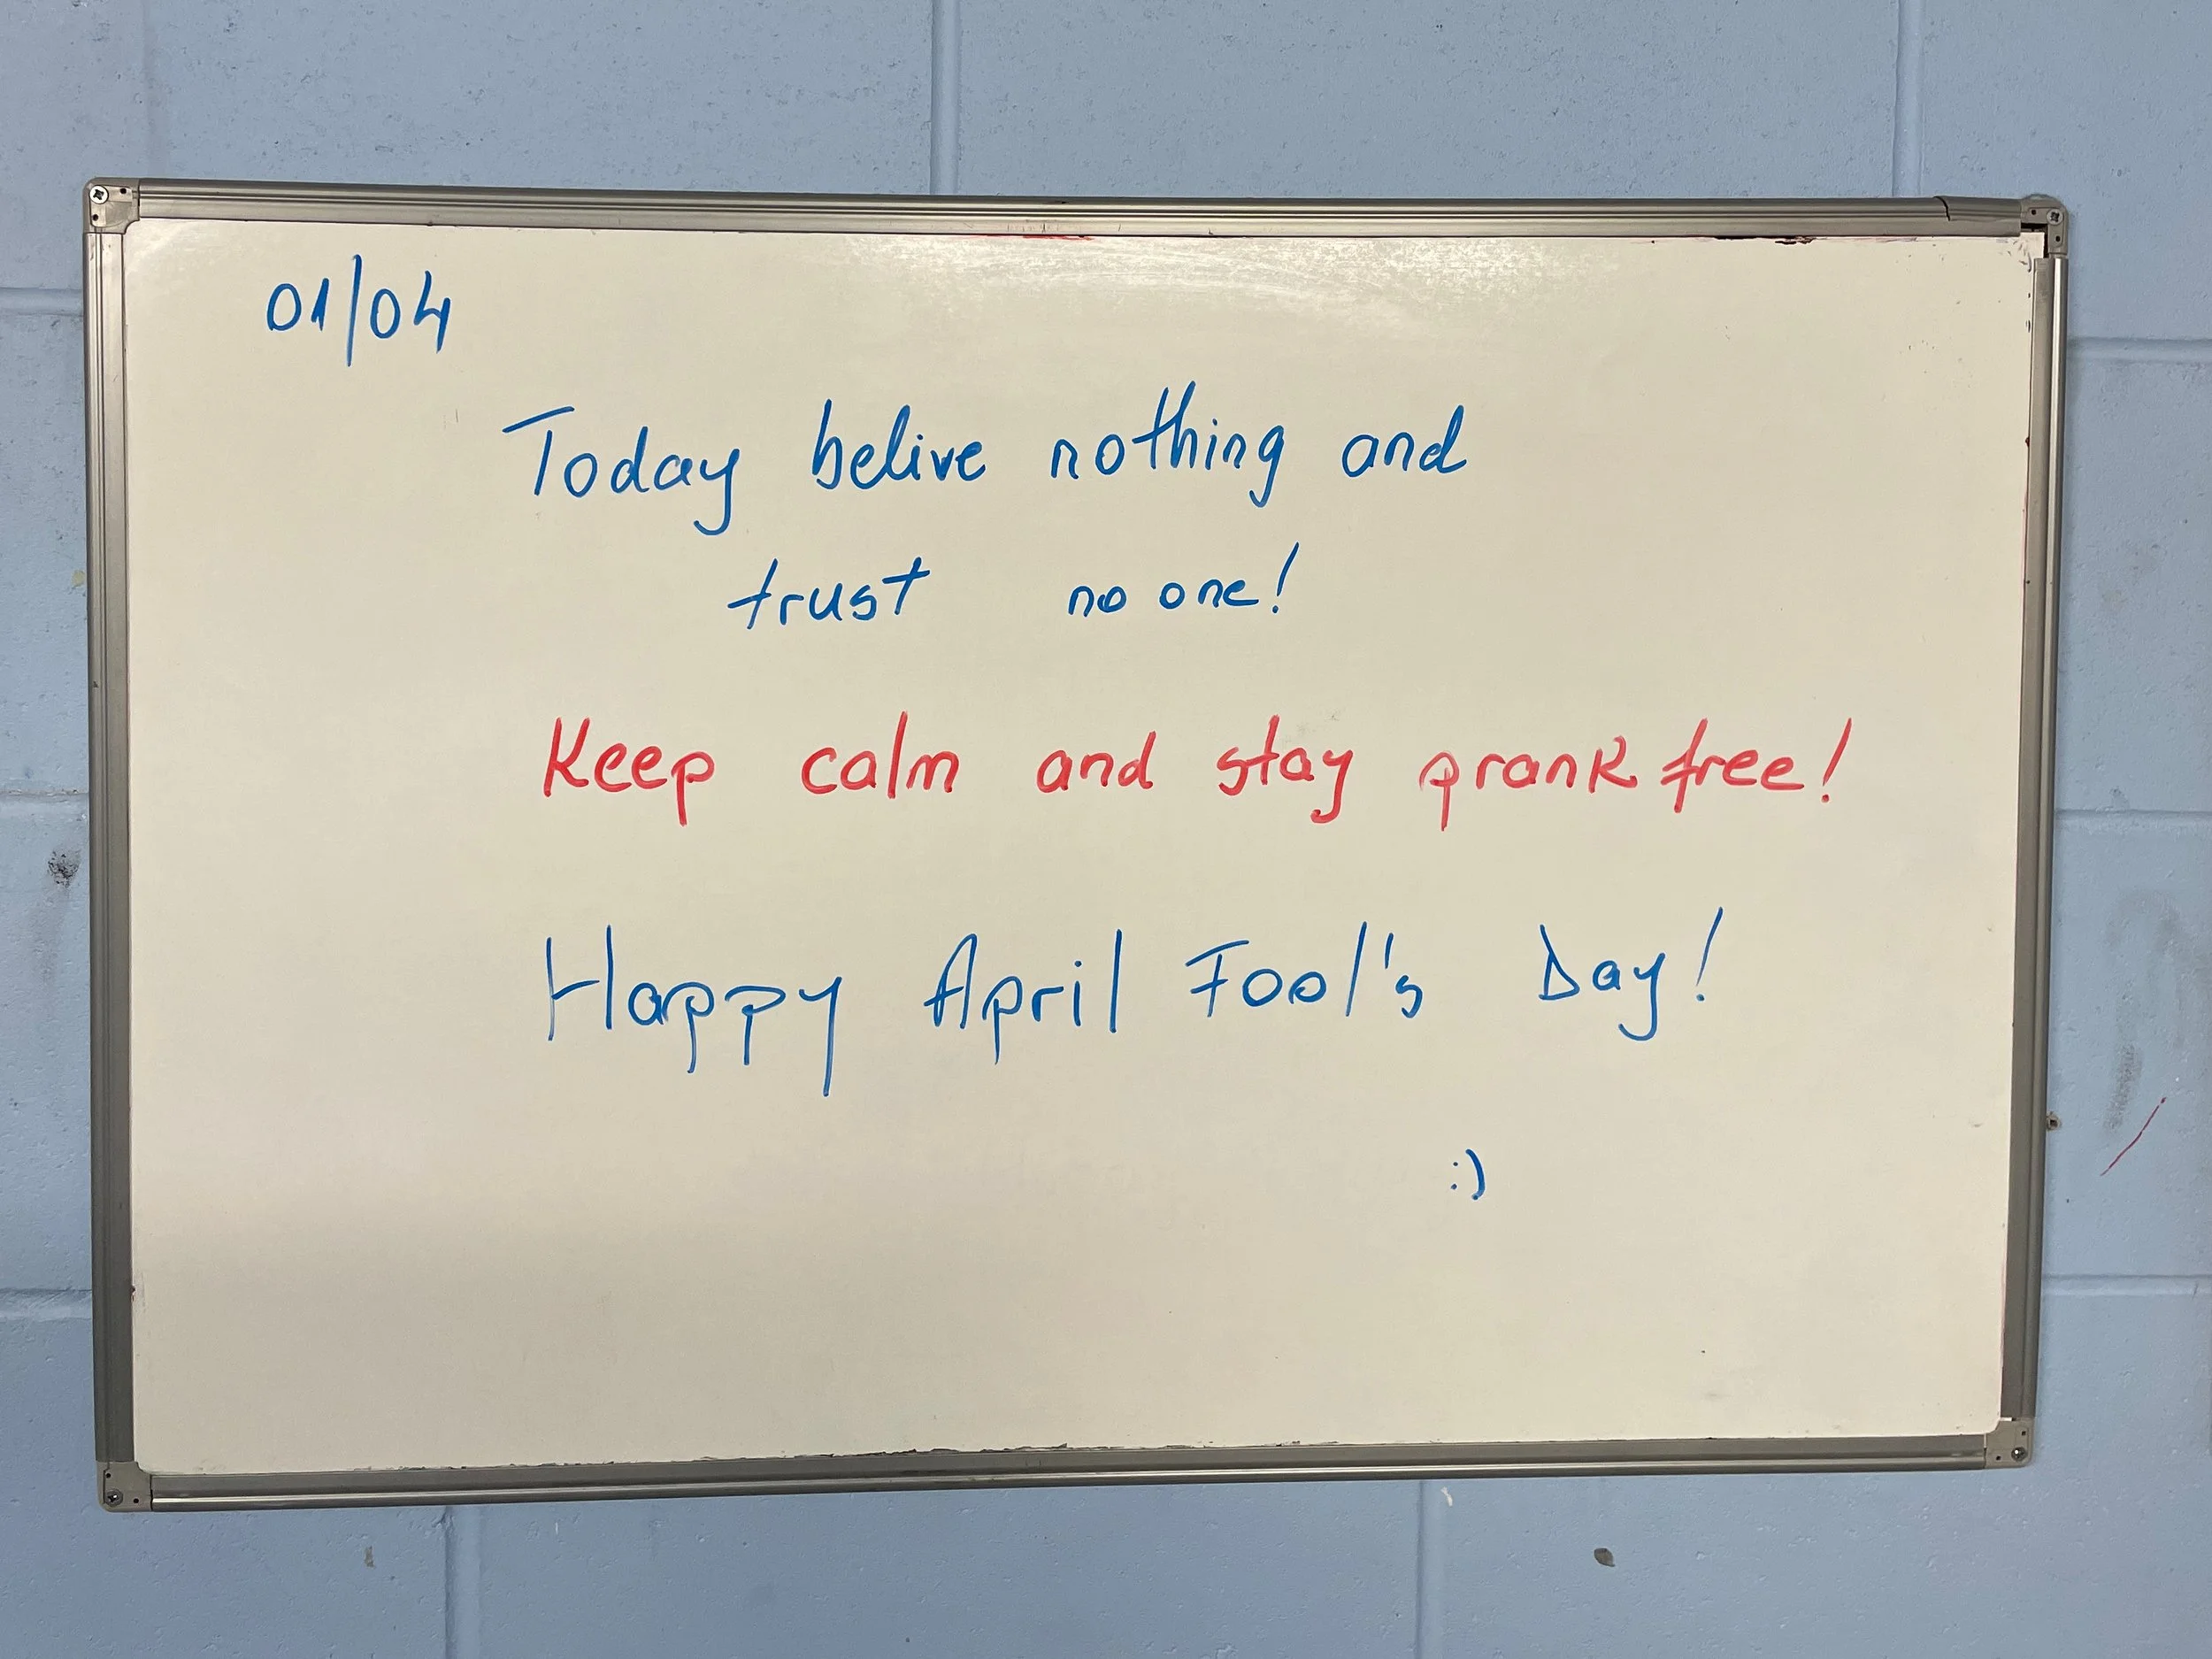 01/04
Today belive nothing and
trust no one!
Keep calm and stay prank free!
Happy April Fool's Day!
:)